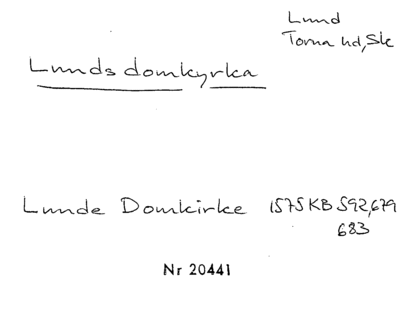 Lund
Torna hd, Sk
Lunds domkyrka
Lunde Domkirke 1575 KB 592, 679
683
Nr 20441